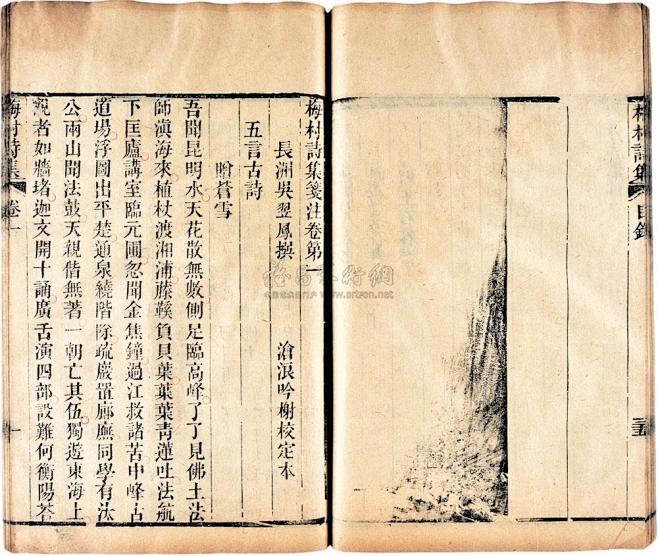 梅村詩集 目錄
三五
梅村詩集箋注卷第一
長洲吳翌鳳撰 滄浪吟榭校定本
五言古詩
贈蒼雪
吾聞昆明水天花散無數側足臨高峰了了見佛土法
師滇海來植杖渡湘浦藤鞵負貝葉葉葉青蓮吐法航
下匡廬講室臨元圃忽聞金焦鐘過江救諸苦中峰古
道場浮圖出平楚通泉繞階除疏巖置廊廡同學有汰
公兩山聞法鼓天親偕無著一朝亡其伍獨遊東海上
觀者如牆堵迦文開十誦廣舌演四部設難何衡陽答
梅村詩集 卷一
一
www.artron.net